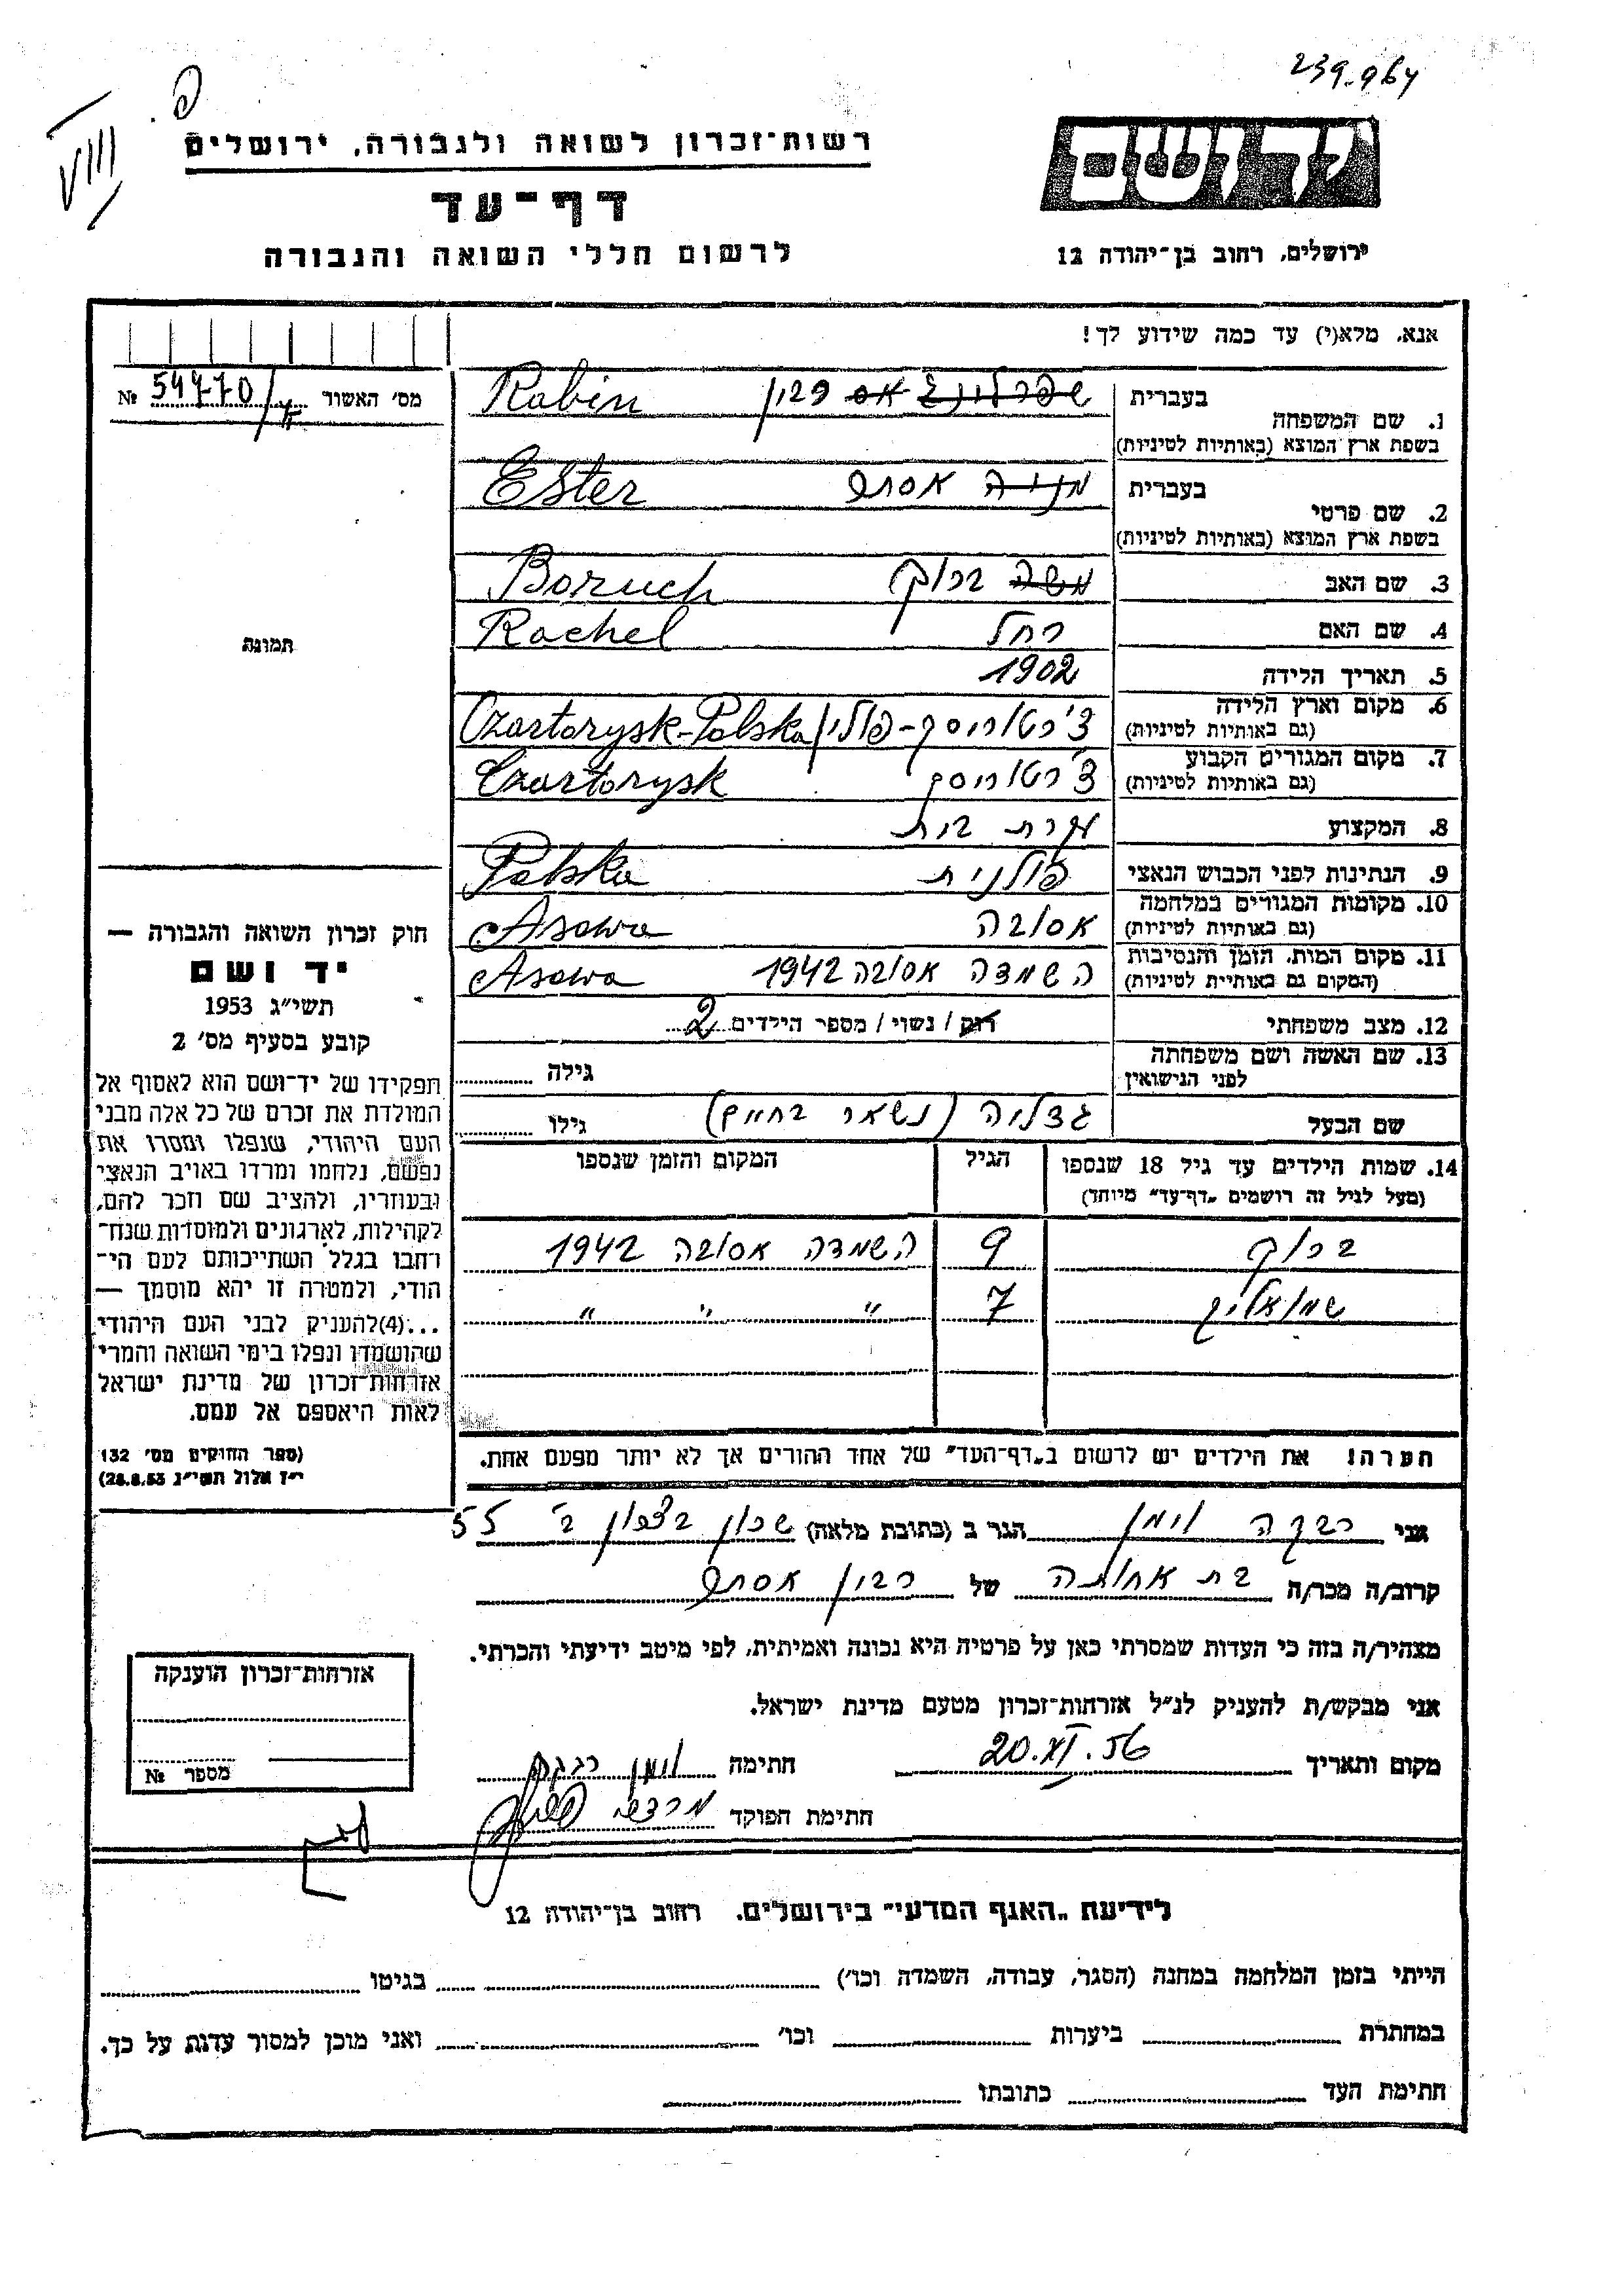 239.964
פ.
VIII
רשות־זכרון לשואה ולגבורה, ירושלים
דף־עד
לרשום חללי השואה והגבורה
יד ושם
ירושלים, רחוב בן־יהודה 12
אנא, מלא(י) עד כמה שידוע לך!
מס׳ האשור 54470/ № 
1. שם המשפחה בעברית רבין Rabin
בשפת ארץ המוצא (באותיות לטיניות)
2. שם פרטי בעברית מניה אסתר Ester
בשפת ארץ המוצא (באותיות לטיניות)
3. שם האב משה ברוך Boruch
4. שם האם רחל Rachel
5. תאריך הלידה 1902
6. מקום וארץ הלידה צ׳רטוריסק-פולין Czartorysk-Polska
(גם באותיות לטיניות)
7. מקום המגורים הקבוע צ׳רטוריסק Czartorysk
(גם באותיות לטיניות)
8. המקצוע עקרת בית
9. הנתינות לפני הכבוש הנאצי פולנית Polska
10. מקומות המגורים במלחמה אסובה Asowa
(גם באותיות לטיניות)
11. מקום המות, הזמן והנסיבות השמדה אסובה 1942 Asowa
(המקום גם באותיית לטיניות)
12. מצב משפחתי רוק / נשוי / מספר הילדים 2
13. שם האשה ושם משפחתה
לפני הנישואין גילה
שם הבעל גדליה (נשאר בחיים) גילו
תמונה
חוק זכרון השואה והגבורה —
יד ושם
תשי״ג 1953
קובע בסעיף מס׳ 2
תפקידו של יד־ושם הוא לאסוף אל
המולדת את זכרם של כל אלה מבני
העם היהודי, שנפלו ומסרו את
נפשם, נלחמו ומרדו באויב הנאצי
ובעוזריו, ולהציב שם וזכר להם,
לקהילות, לארגונים ולמוסדות שנח־
רבו בגלל השתייכותם לעם הי־
הודי, ולמטרה זו יהא מוסמך —
...(4)להעניק לבני העם היהודי
שהושמדו ונפלו בימי השואה והמרי
אזרחות־זכרון של מדינת ישראל
לאות היאספם אל עמם.
(ספר החוקים מס׳ 132
י״ז אלול תשי״ג 28.8.53)
14. שמות הילדים עד גיל 18 שנספו הגיל המקום והזמן שנספו
(מעל לגיל זה רושמים „דף־עד״ מיוחד)
ברוך 9 השמדה אסובה 1942
שמואליק 7 " " "
הערה! את הילדים יש לרשום ב„דף־העד״ של אחד ההורים אך לא יותר מפעם אחת.
אני רבקה וימן הגר ב (כתובת מלאה) שכון בצפון ב׳ 55
קרוב/ה מכר/ה בת אחותה של רבין אסתר
מצהיר/ה בזה כי העדות שמסרתי כאן על פרטיה היא נכונה ואמיתית, לפי מיטב ידיעתי והכרתי.
אני מבקש/ת להעניק לנ״ל אזרחות־זכרון מטעם מדינת ישראל.
מקום ותאריך 20.XI.56 חתימה וימן רבקה
חתימת הפוקד מרדכי
אזרחות־זכרון הוענקה
מספר №
לידיעת „האגף המדעי״ בירושלים, רחוב בן־יהודה 12
הייתי בזמן המלחמה במחנה (הסגר, עבודה, השמדה וכו׳) בגיטו
במחתרת ביערות וכו׳ ואני מוכן למסור עדות על כך.
חתימת העד כתובתו